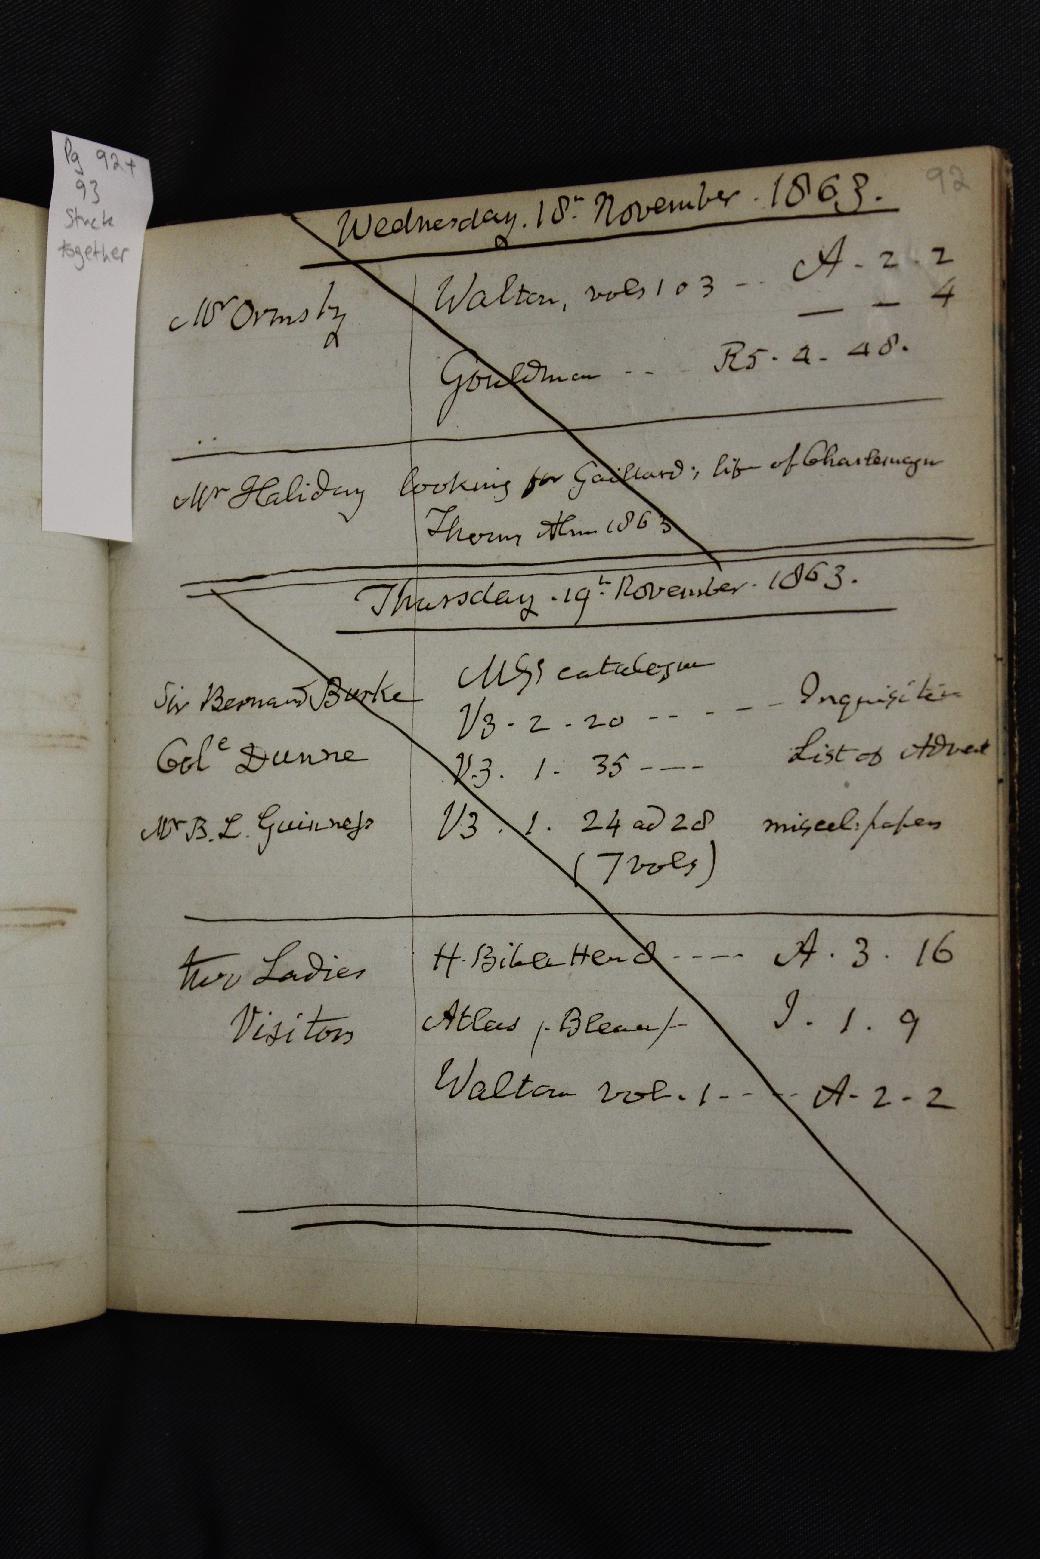 Pg 92+
93
Stuck
together
92
Wednesday. 18th November. 1863.
Mr Ormsby Walton, vols 1 & 3 -- A-2-2
— – 4
Gouldman -- R5.4-48.
Mr Haliday looking for Gaillard's life of Charlemagne
Thoms Alm 1863
Thursday. 19th November. 1863.
MSS catalogue
Sir Bernard Burke V3-2-20 ----- Inquisition
Colˡ Dunne V.3. 1. 35 ---- List of Advent
Mr B. L. Guinness V3. 1. 24 ad 28 miscel. papers
(7 vols)
two Ladies H. Bible ---- A. 3. 16
Visitors Atlas /-Bleau/- I. 1. 9
Walton vol. 1 ---- A-2-2